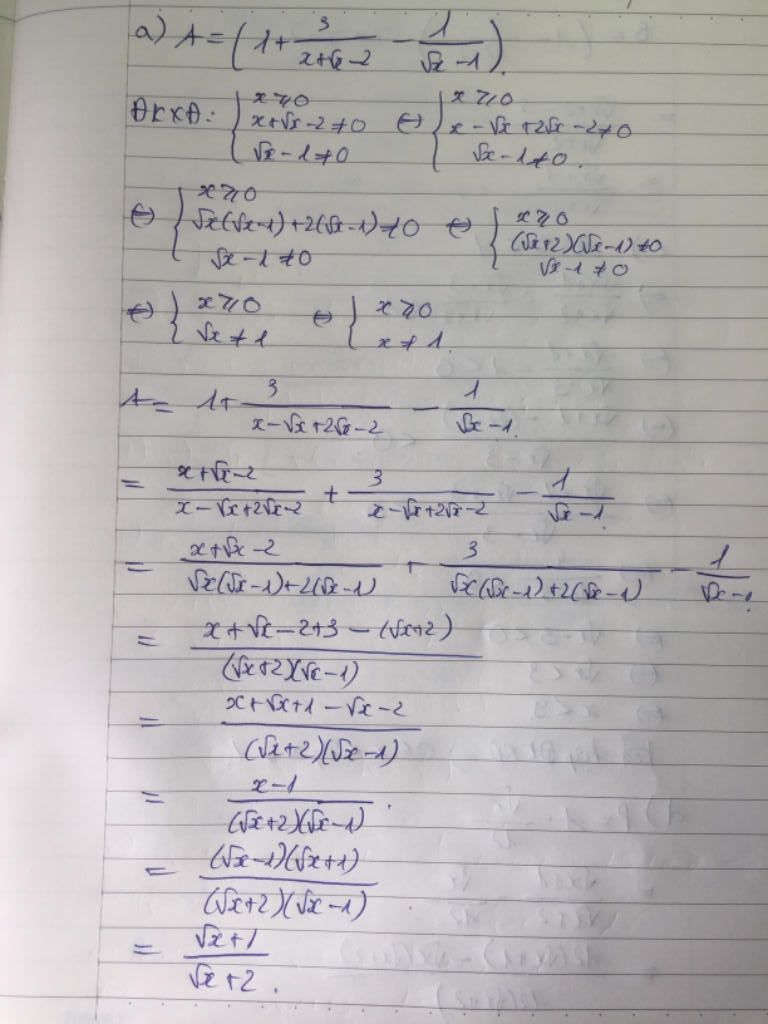 a) A = (1 + 3/(x+√x-2) - 1/(√x-1)).
ĐKXĐ: { x ≥ 0; x+√x-2 ≠ 0; √x-1 ≠ 0 ⇔ { x ≥ 0; x-√x+2√x-2 ≠ 0; √x-1 ≠ 0.
⇔ { x ≥ 0; √x(√x-1)+2(√x-1) ≠ 0; √x-1 ≠ 0 ⇔ { x ≥ 0; (√x+2)(√x-1) ≠ 0; √x-1 ≠ 0
⇔ { x ≥ 0; √x ≠ 1 ⇔ { x ≥ 0; x ≠ 1.
A = 1 + 3/(x-√x+2√x-2) - 1/(√x-1).
= (x+√x-2)/(x-√x+2√x-2) + 3/(x-√x+2√x-2) - 1/(√x-1).
= (x+√x-2)/(√x(√x-1)+2(√x-1)) + 3/(√x(√x-1)+2(√x-1)) - 1/(√x-1).
= (x+√x-2+3-(√x+2))/((√x+2)(√x-1))
= (x+√x+1-√x-2)/((√x+2)(√x-1))
= (x-1)/((√x+2)(√x-1)).
= ((√x-1)(√x+1))/((√x+2)(√x-1))
= (√x+1)/(√x+2).